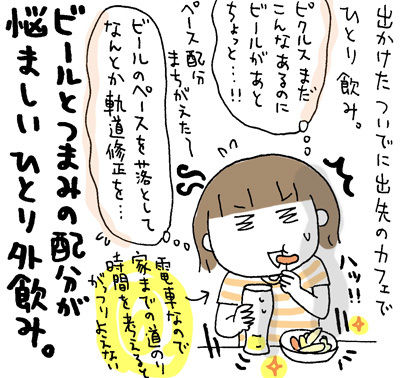 出かけたついでに出先のカフェで
ひとり飲み。
ピクルスまだ
こんなあるのに
ビールがあと
ちょっと…!!
ペース配分
まちがえた〜
ビールのペースを落として
なんとか軌道修正を…
ハッ!!
電車なので
家までの道のり
時間を考えると
がっつりよえない
ビールとつまみの配分が
悩ましいひとり外飲み。